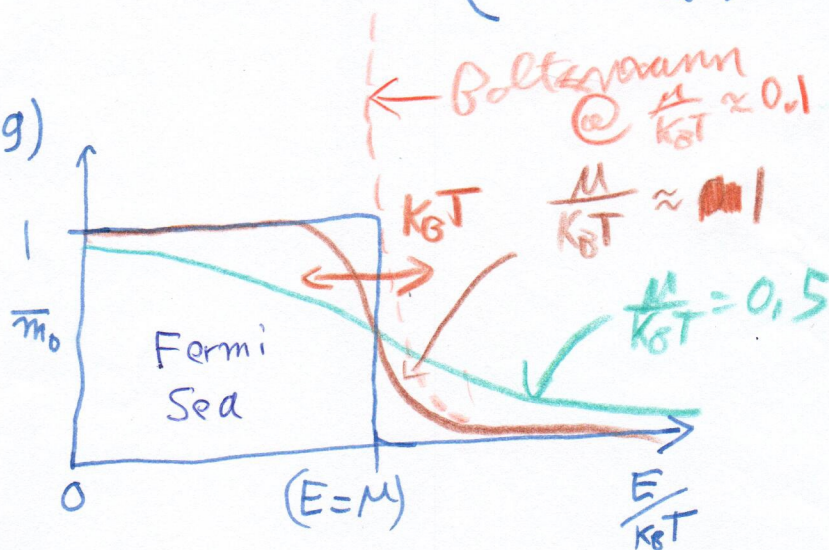 Boltzmann
@ μ/K_BT ≈ 0.1
g)
K_BT
μ/K_BT ≈ 1
1
m̅₀
μ/K_BT = 0,5
Fermi
Sea
0
(E=μ)
E/K_BT